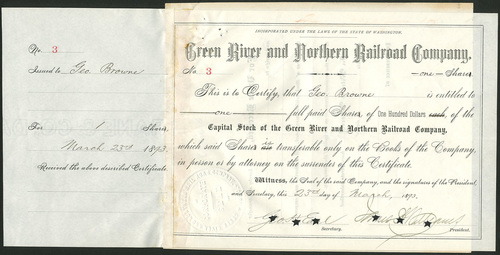 No. 3
Issued to Geo. Browne
For 1 Shares
March 23rd 1893
Received the above described Certificate.
INCORPORATED UNDER THE LAWS OF THE STATE OF WASHINGTON.
Green River and Northern Railroad Company.
No. 3 one Shares
This is to Certify, that Geo. Browne is entitled to
one full paid Shares of One Hundred Dollars each, of the
Capital Stock of the Green River and Northern Railroad Company,
which said Shares transferable only on the Books of the Company
in person or by attorney on the surrender of this Certificate.
Witness, the Seal of the said Company, and the signatures of the President
and Secretary, this 23rd day of March, 1893.
Secretary. President.